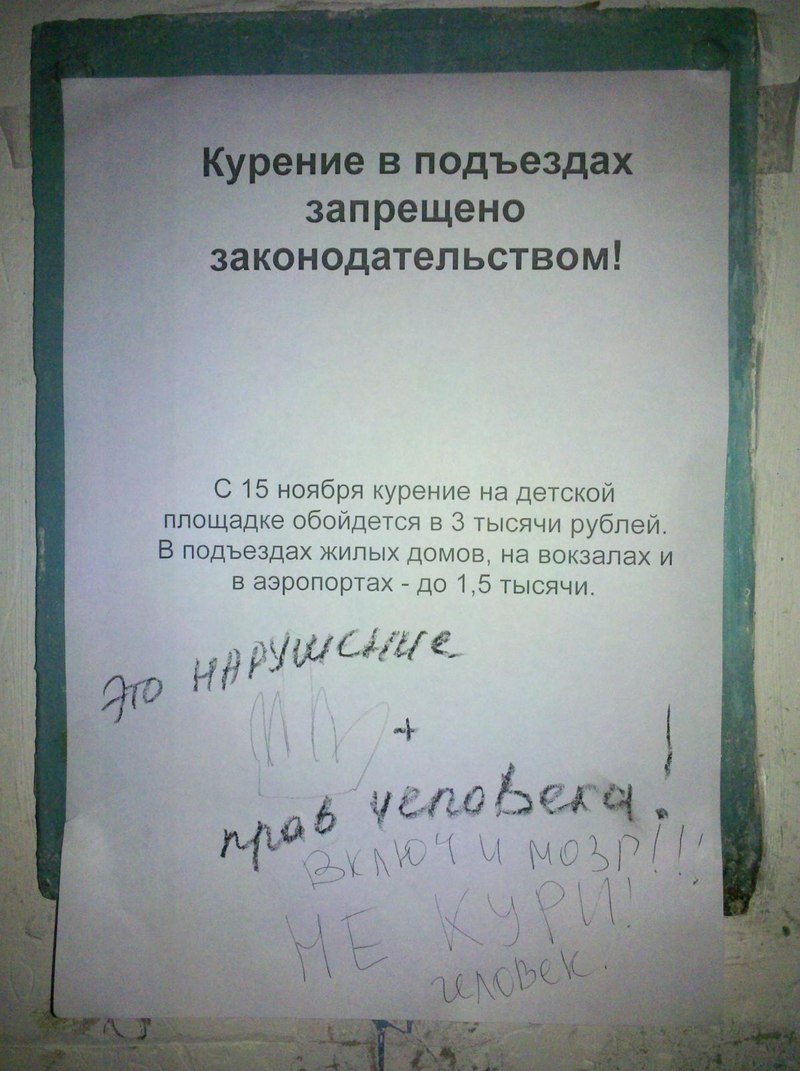 Курение в подъездах
запрещено
законодательством!
С 15 ноября курение на детской
площадке обойдется в 3 тысячи рублей.
В подъездах жилых домов, на вокзалах и
в аэропортах - до 1,5 тысячи.
это НАРУШЕНИЕ
+
прав человека!
ВКЛЮЧИ МОЗГ!!!
НЕ КУРИ!
человек.